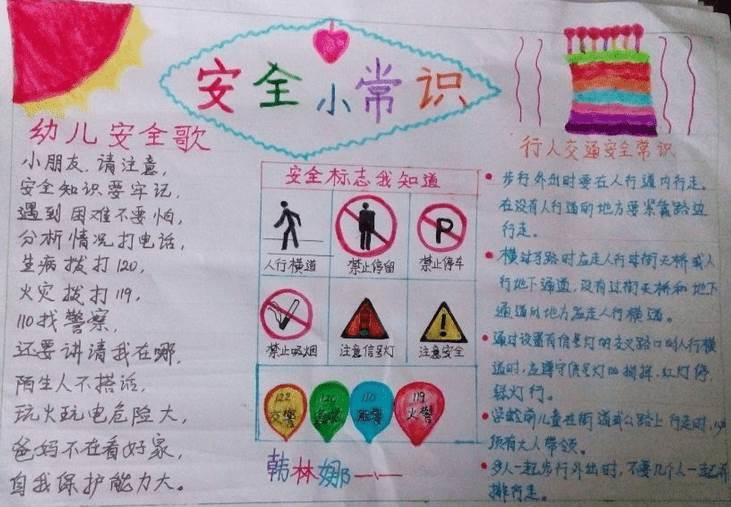 安全小常识
幼儿安全歌
小朋友,请注意,
安全知识要牢记,
遇到困难不要怕,
分析情况打电话,
生病拨打120,
火灾拨打119,
110找警察,
还要讲请我在哪,
陌生人不搭话,
玩火玩电危险大,
爸妈不在看好家,
自我保护能力大。
安全标志我知道
P
人行横道
禁止停留
禁止停车
禁止吸烟
注意信号灯
注意安全
122
120
110
119
交警
急救
匪警
火警
韩林娜
行人交通安全常识
步行外出时要在人行道内行走。
在没有人行道的地方要紧靠路边
行走。
横过马路时应走人行过街天桥或人
行地下通道,没有过街天桥和地下
通道的地方应走人行横道。
通过设置有信号灯的交叉路口的人行横
道时,应遵守信号灯的指挥,红灯停,
绿灯行。
学龄前儿童在街道或公路上行走时,
须有大人带领。
多人一起步行外出时,不要几个人一起并
排行走。